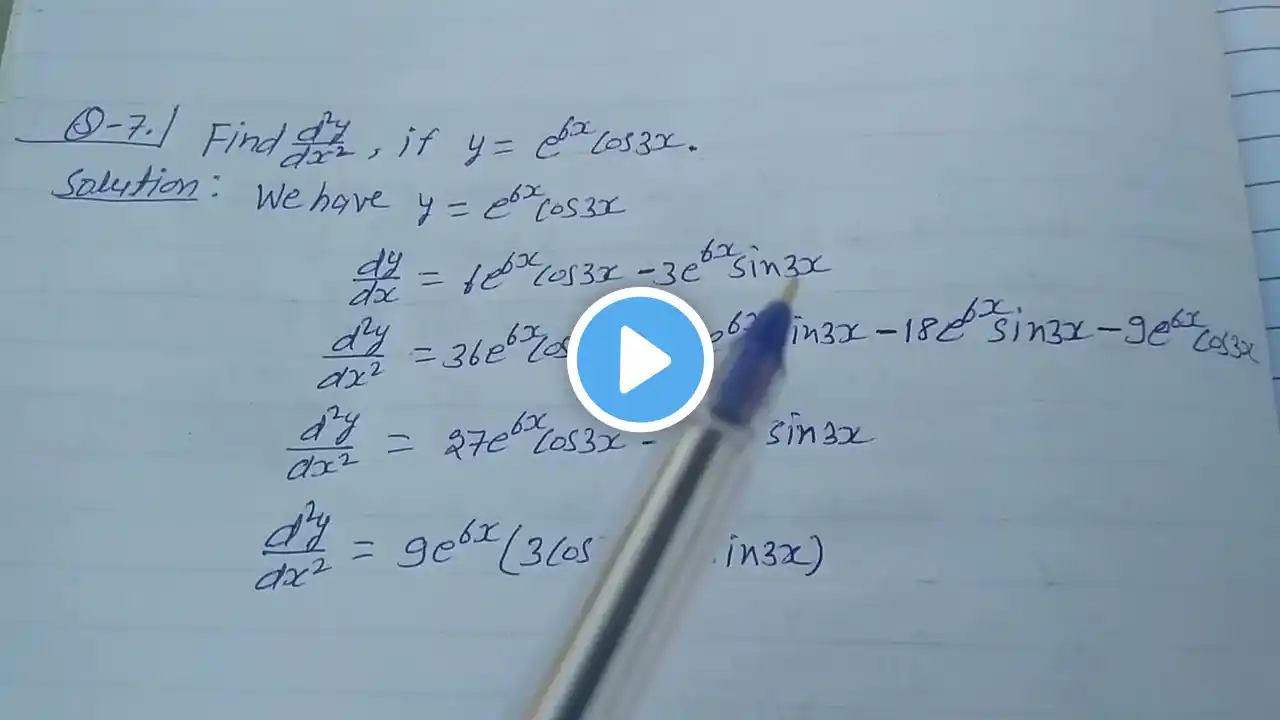 Q-7. Find d²y/dx², if y = e^6x cos3x.
Solution: We have y = e^6x cos3x
dy/dx = 6e^6x cos3x - 3e^6x sin3x
d²y/dx² = 36e^6x cos e^6x in3x - 18e^6x sin3x - 9e^6x cos3x
d²y/dx² = 27e^6x cos3x - sin3x
d²y/dx² = 9e^6x (3cos in3x)